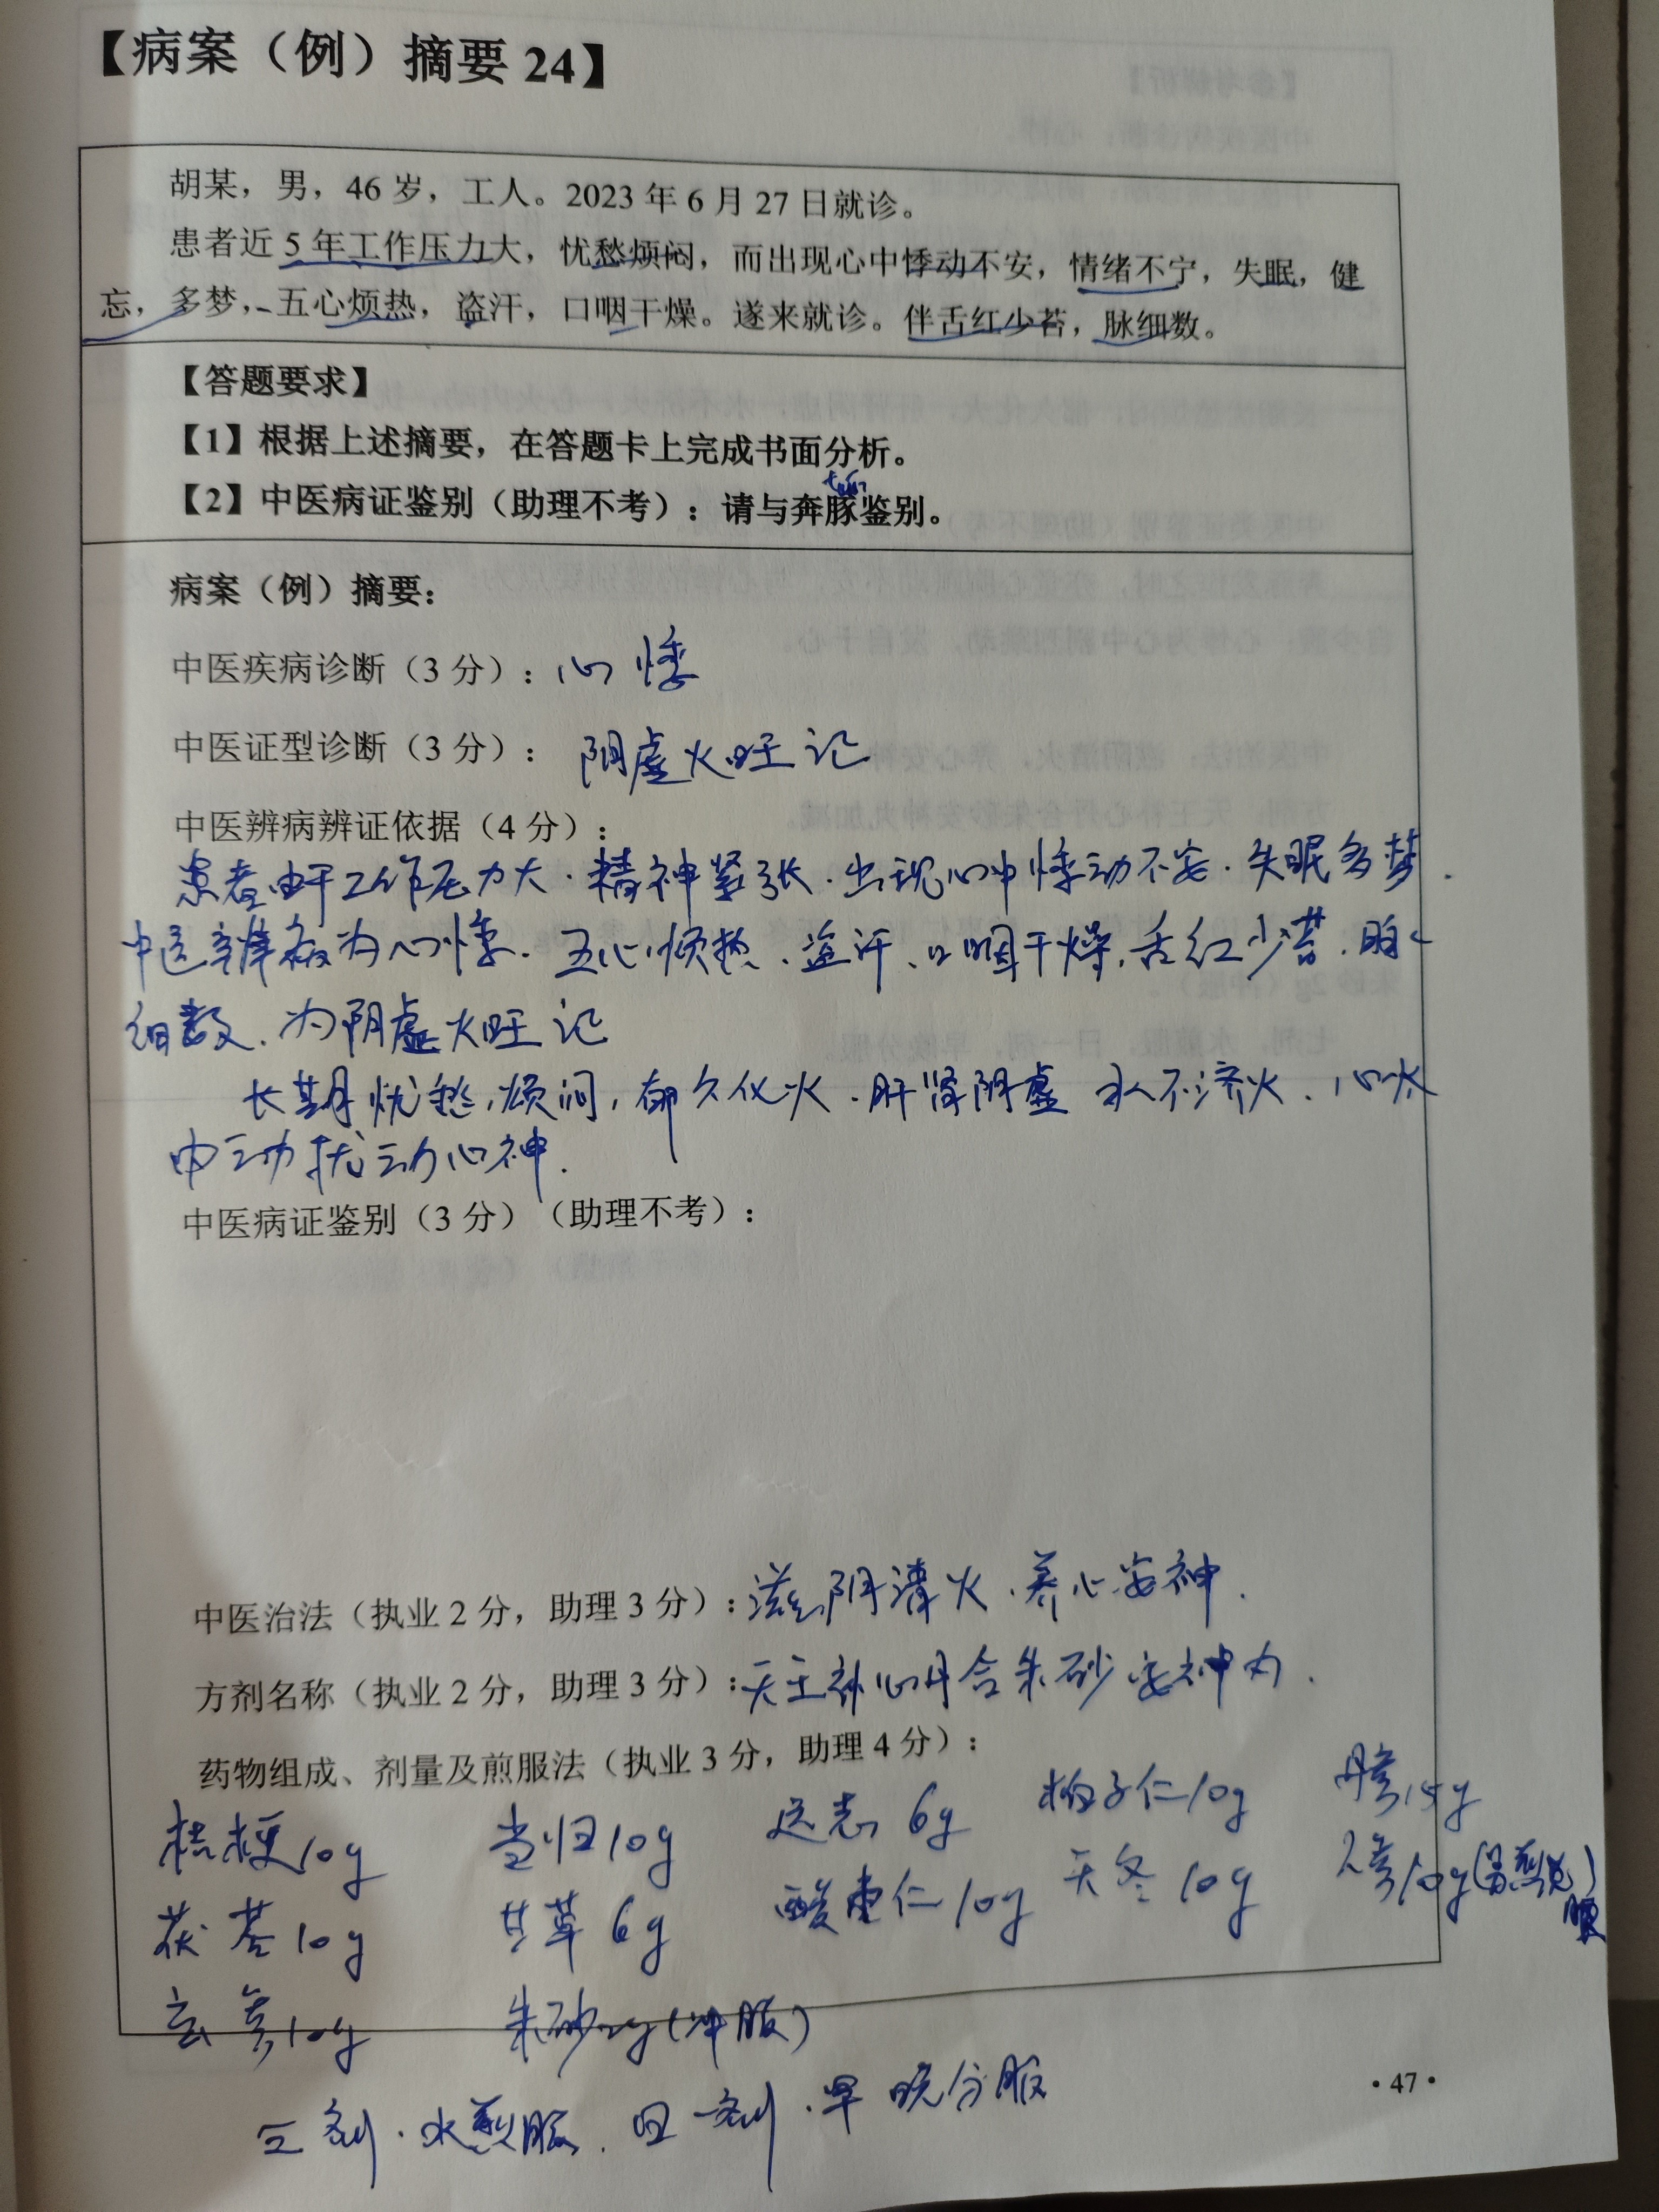 【病案（例）摘要 24】
胡某，男，46 岁，工人。2023 年 6 月 27 日就诊。
患者近 5 年工作压力大，忧愁烦闷，而出现心中悸动不安，情绪不宁，失眠，健
忘，多梦，五心烦热，盗汗，口咽干燥。遂来就诊。伴舌红少苔，脉细数。
【答题要求】
【1】根据上述摘要，在答题卡上完成书面分析。
【2】中医病证鉴别（助理不考）：请与奔豚鉴别。
病案（例）摘要：
中医疾病诊断（3 分）：心悸
中医证型诊断（3 分）：阴虚火旺记
中医辨病辨证依据（4 分）：
患者由于工作压力大．精神紧张．出现心中悸动不安．失眠多梦．
中医辨病为心悸．五心烦热、盗汗、口咽干燥，舌红少苔．脉
细数．为阴虚火旺记
长期忧愁，烦闷，郁久化火．肝肾阴虚 水不济火、心火
内动扰动心神．
中医病证鉴别（3 分）（助理不考）：
中医治法（执业 2 分，助理 3 分）：滋阴清火．养心安神．
方剂名称（执业 2 分，助理 3 分）：天王补心丹合朱砂安神丸．
药物组成、剂量及煎服法（执业 3 分，助理 4 分）：
桔梗10g 当归10g 远志 6g 柏子仁10g 丹参15g
茯苓10g 甘草 6g 酸枣仁10g 天冬 10g 人参10g（另煎兑服）
玄参10g 朱砂2g（冲服）
三剂．水煎服．日一剂．早晚分服
·47·